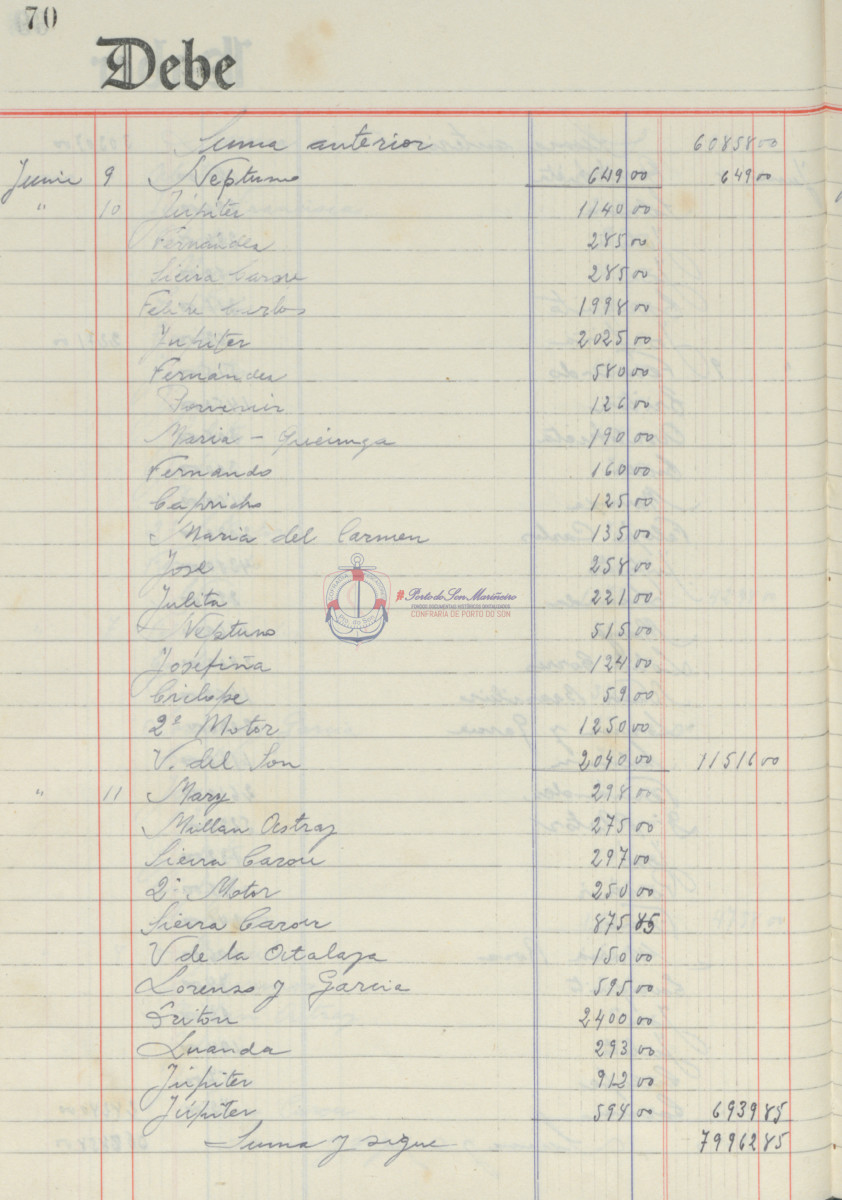 70
Debe
Suma anterior 60858 00
Junio 9 Neptuno 649 00 649 00
" 10 Júpiter 1140 00
Fernández 285 00
Sieira Carou 285 00
Felipe Carlos 1998 00
Jupiter 2025 00
Fernández 580 00
Porvenir 126 00
Maria - Queiruga 190 00
Fernando 160 00
Capricho 125 00
Maria del Carmen 135 00
José 258 00
Julita 221 00
Neptuno 515 00
Josefina 124 00
Ciclope 59 00
2º Motor 1250 00
V. del Son 2040 00 11516 00
" 11 Mary 298 00
Millan Astray 275 00
Sieira Carou 297 00
2º Motor 250 00
Sieira Carou 875 85
V de la Atalaya 150 00
Lorenzo y Garcia 595 00
Triton 2400 00
Luanda 293 00
Júpiter 912 00
Júpiter 594 00 6939 85
Suma y sigue 79962 85
COFRADIA
Pto. do Son
#Porto do Son Mariñeiro
FONDOS DOCUMENTAIS HISTÓRICOS DIXITALIZADOS
CONFRARÍA DE PORTO DO SON